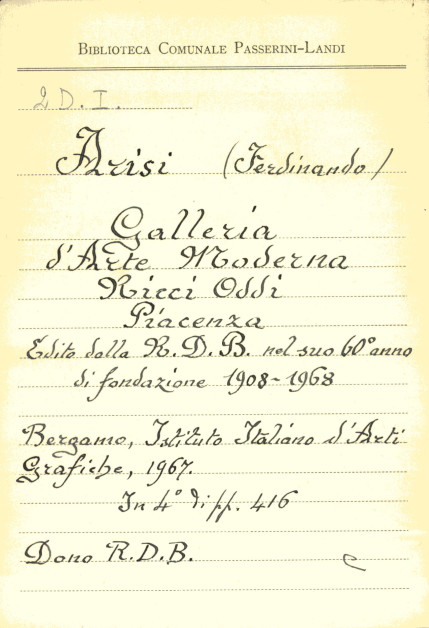 BIBLIOTECA COMUNALE PASSERINI-LANDI
2 D. I.
Arisi (Ferdinando)
Galleria
d'Arte Moderna
Ricci Oddi
Piacenza
Edito dalla R.D.B. nel suo 60° anno
di fondazione 1908-1968
Bergamo, Istituto Italiano d'Arti
Grafiche, 1967.
In 4° di pp. 416
Dono R.D.B.